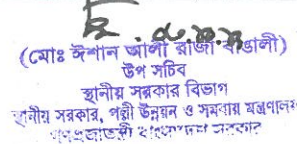 (মোঃ ঈশান আলী রাজা বাঙালী)
উপ সচিব
স্থানীয় সরকার বিভাগ
স্থানীয় সরকার, পল্লী উন্নয়ন ও সমবায় মন্ত্রণালয়
গণপ্রজাতন্ত্রী বাংলাদেশ সরকার